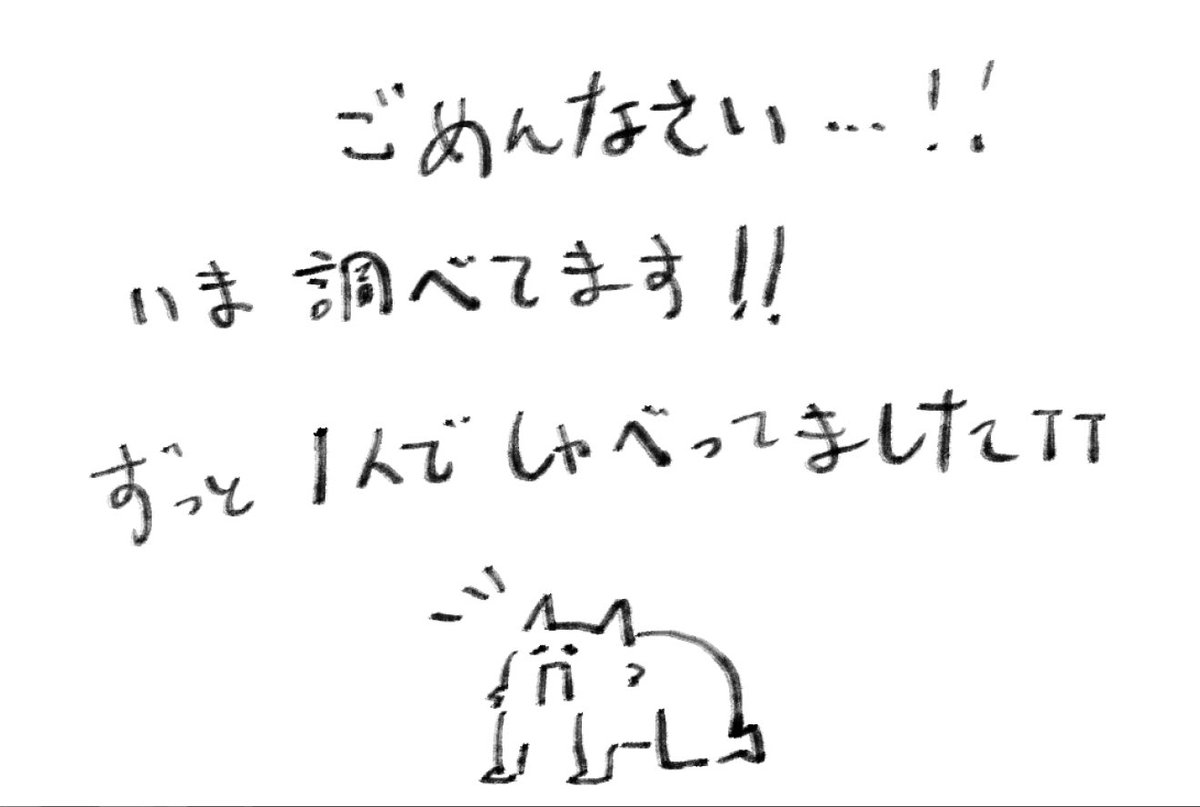 ごめんなさい…!!
いま調べてます!!
ずっと1人でしゃべってましたてTT